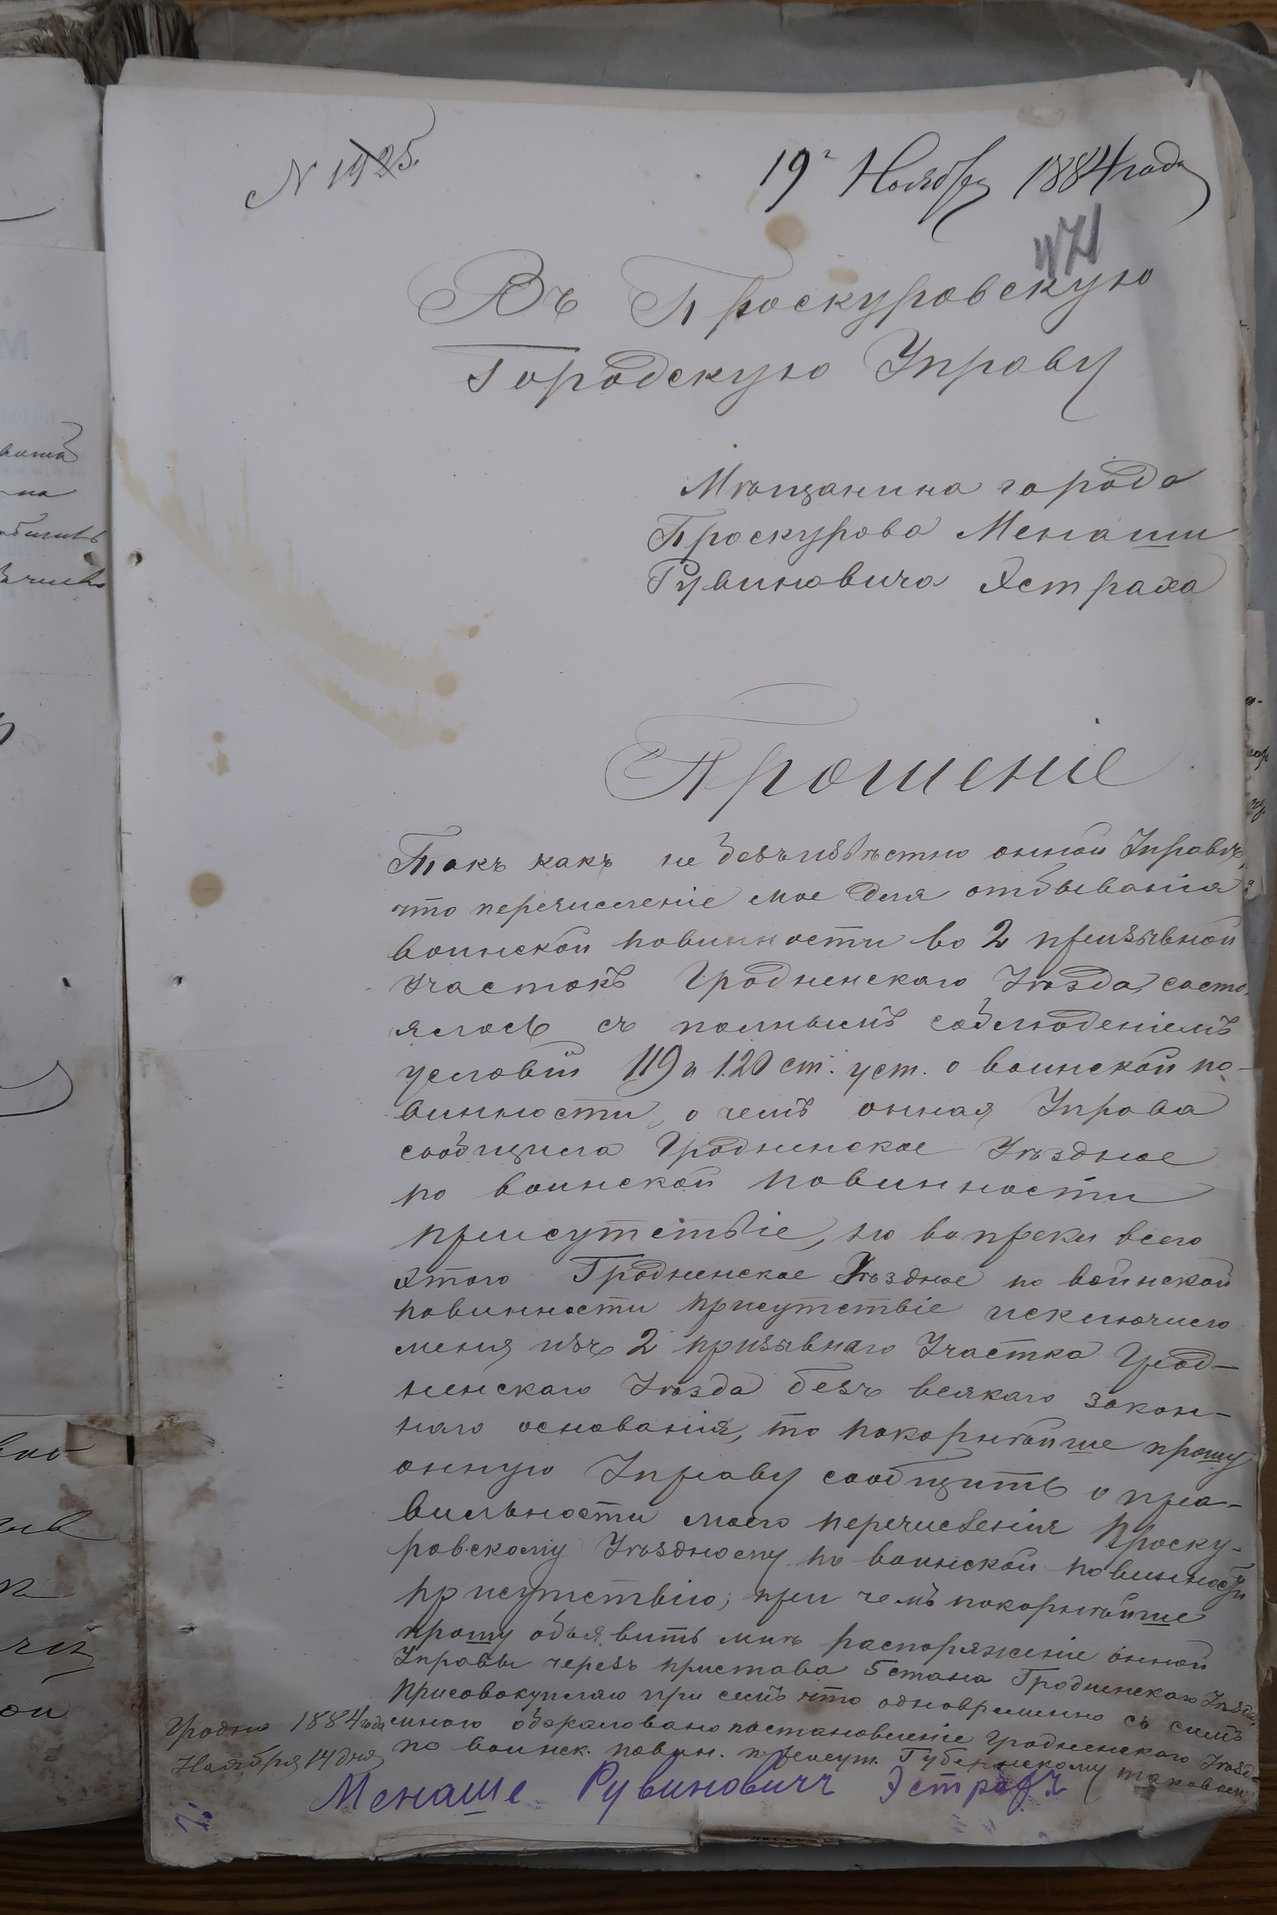 N 1925.
19 Ноября 1884 года
471
Въ Проскуровскую
Городскую Управу
Мѣщанина города
Проскурова Менаши
Рувиновича Эстраха
Прошеніе
Такъ какъ не безъизвѣстно оной Управѣ,
что перечисленіе мое для отбыванія
воинской повинности во 2 призывной
Участокъ Гродненскаго Уѣзда, состо
ялось съ полнымъ соблюденіемъ
условій 119 и 120 ст. уст. о воинской по-
винности, о чемъ онная Управа
сообщила Гродненское Уѣздное
по воинской повинности
присутствіе, но вопреки всего
этого Гродненское Уѣздное по воинской
повинности присутствіе исключило
меня изъ 2 призывнаго Участка Грод-
ненскаго Уѣзда безъ всякаго закон-
наго основанія, то покорнѣйше прошу
онную Управу сообщить о пра-
вильности моего перечисленія Проску-
ровскому Уѣздному по воинской повинности
присутствію; при чемъ покорнѣйше
прошу объявить мнѣ распоряженіе онной
Управы черезъ пристава 5 стана Гродненскаго Уѣзда,
присовокупляю при семъ что одновременно съ симъ
мною обжаловано постановленіе Гродненскаго Уѣзд-
по воинск. повин. присут. Губернскому таковом
Гродно 1884 года
Ноября 14 дня
Менаше Рувиновичъ Эстрахъ